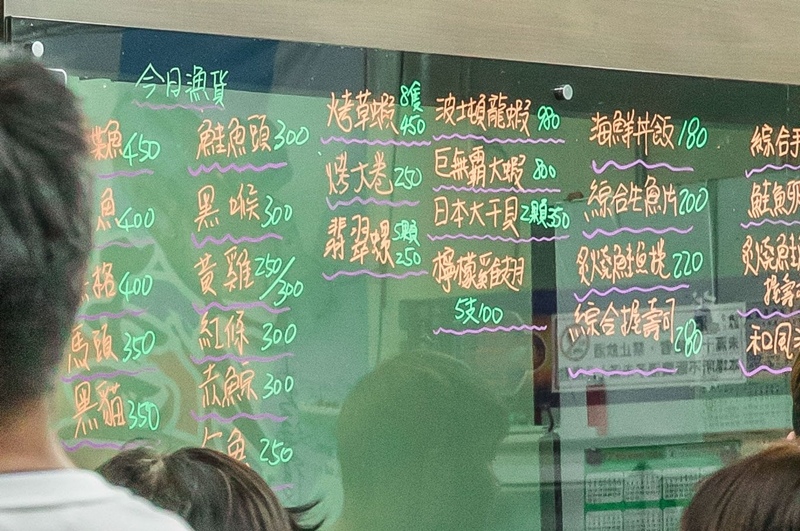 今日漁貨
魚450
魚400
400
馬頭350
黑貓350
鮭魚頭300
黑喉300
黃雞250/300
紅條300
赤鯮300
魚250
烤草蝦8隻450
烤大卷250
翡翠螺5顆250
波士頓龍蝦980
巨無霸大蝦800
日本大干貝2顆350
檸檬雞翅
5支100
海鮮丼飯180
綜合生魚片200
炙燒鮭魚握220
綜合握壽司280
綜合手
鮭魚卵
炙燒鮭
握壽
和風